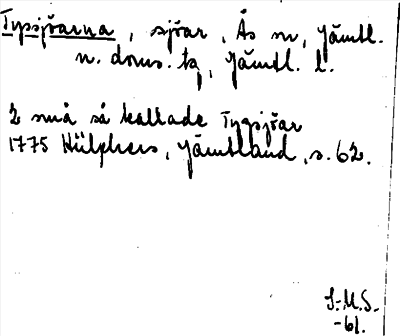 Tysjöarna, sjöar, Ås sn, Jämtl.
n. doms. tg, Jämtl. l.
2 små så kallade Tygsjöar
1775 Hülphers, Jämtland, s. 62.
S.M.S.
-61.